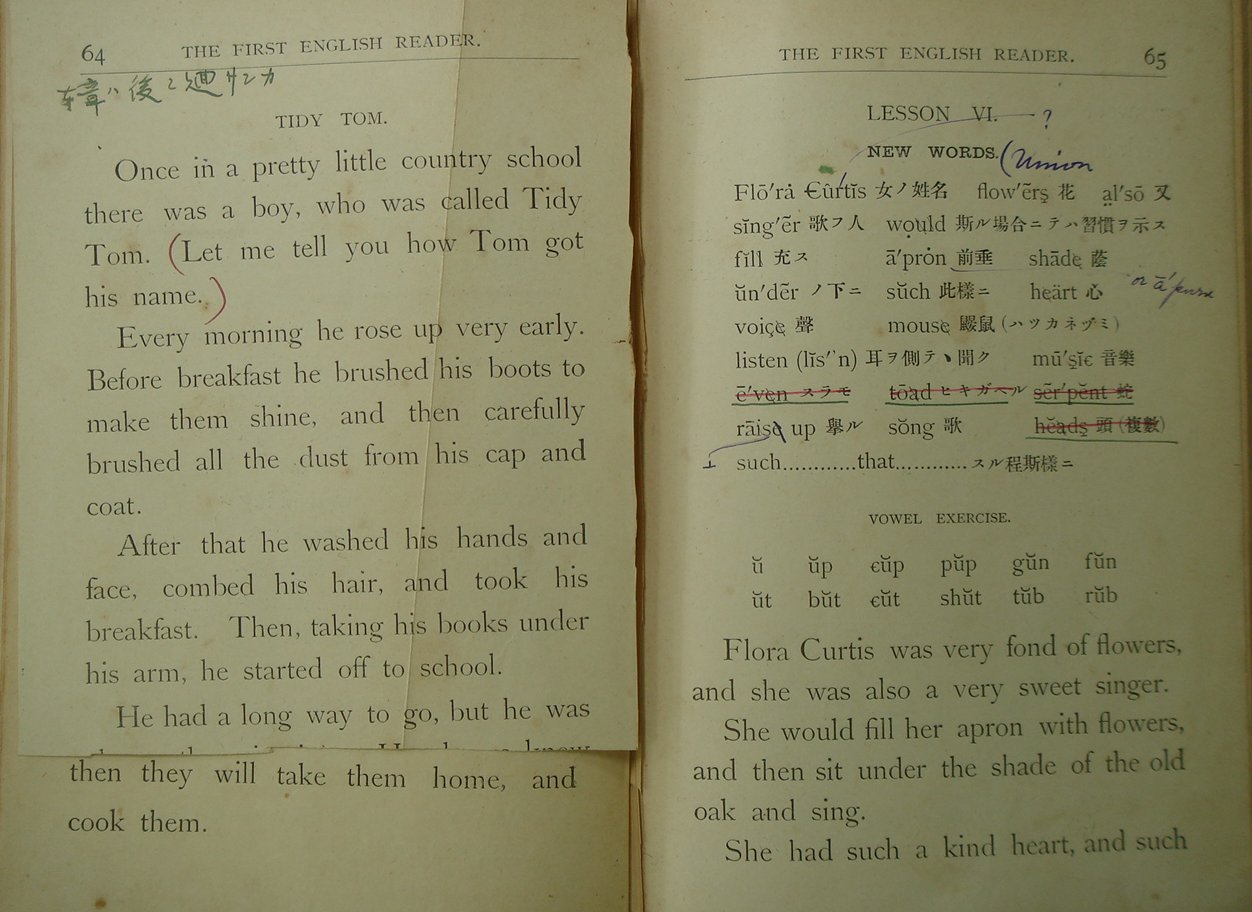 64 THE FIRST ENGLISH READER.
後ニ廻サンカ
TIDY TOM.
Once in a pretty little country school
there was a boy, who was called Tidy
Tom. (Let me tell you how Tom got
his name.)
Every morning he rose up very early.
Before breakfast he brushed his boots to
make them shine, and then carefully
brushed all the dust from his cap and
coat.
After that he washed his hands and
face, combed his hair, and took his
breakfast. Then, taking his books under
his arm, he started off to school.
He had a long way to go, but he was
then they will take them home, and
cook them.
THE FIRST ENGLISH READER. 65
LESSON VI. ?
NEW WORDS. (Union
Flō′rȧ Cûr′tĭs 女ノ姓名 flow′ẽrş 花 ạl′sō 又
sĭng′ẽr 歌フ人 wọuld 斯ル場合ニテハ習慣ヲ示ス
fĭll 充ス ā′prȯn 前垂 shāde 蔭
ŭn′dẽr ノ下ニ sŭch 此樣ニ heärt 心
or ā′purn
voiçe 聲 mouse 鼷鼠 (ハツカネヅミ)
listen (lĭs′'n) 耳ヲ側テヽ聞ク mū′şĭc 音樂
ē′ven スラモ tōad ヒキガヘル sẽr′pĕnt 蛇
rāise up 擧ル sŏng 歌 hĕadş 頭 (複數)
such............that............スル程斯樣ニ
VOWEL EXERCISE.
ŭ ŭp cŭp pŭp gŭn fŭn
ŭt bŭt cŭt shŭt tŭb rŭb
Flora Curtis was very fond of flowers,
and she was also a very sweet singer.
She would fill her apron with flowers,
and then sit under the shade of the old
oak and sing.
She had such a kind heart, and such